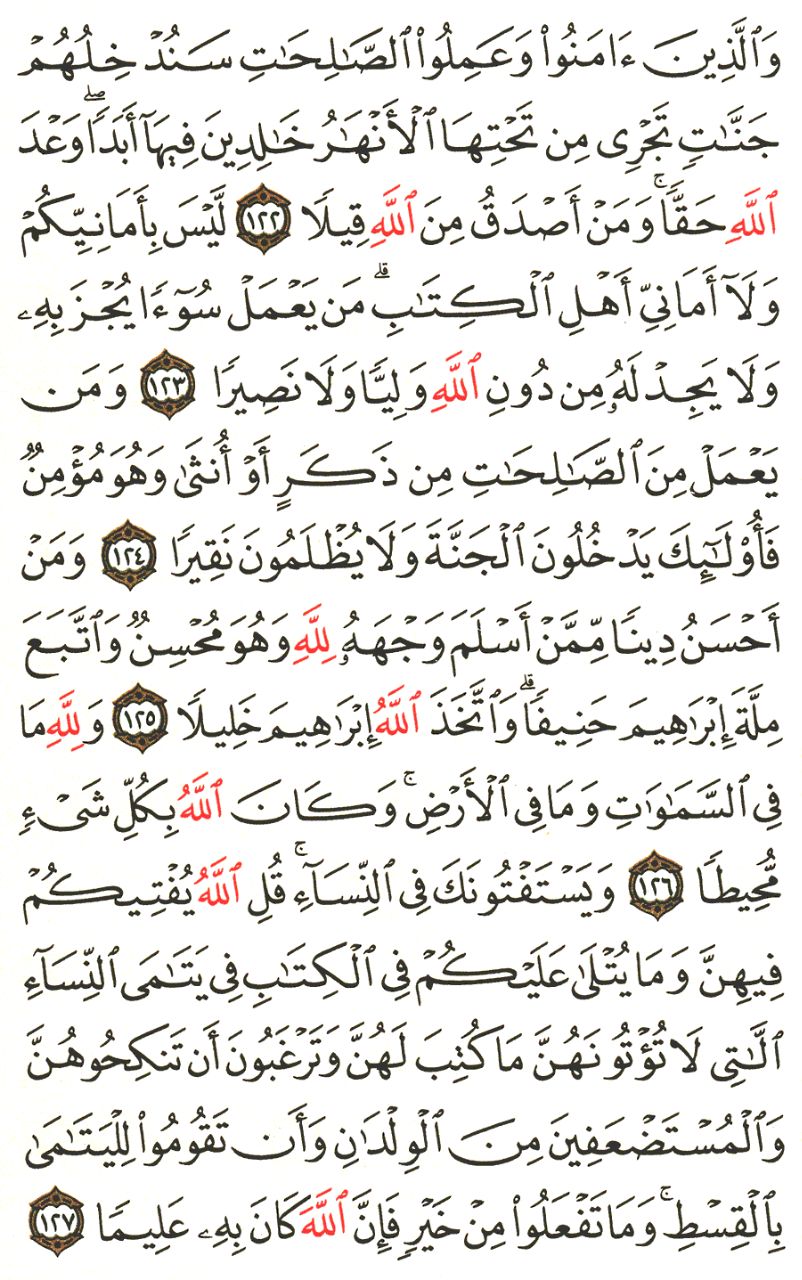 وَٱلَّذِينَ ءَامَنُواْ وَعَمِلُواْ ٱلصَّٰلِحَٰتِ سَنُدۡخِلُهُمۡ
جَنَّٰتٖ تَجۡرِي مِن تَحۡتِهَا ٱلۡأَنۡهَٰرُ خَٰلِدِينَ فِيهَآ أَبَدٗاۖ وَعۡدَ
ٱللَّهِ حَقّٗاۚ وَمَنۡ أَصۡدَقُ مِنَ ٱللَّهِ قِيلٗا ١٢٢ لَّيۡسَ بِأَمَانِيِّكُمۡ
وَلَآ أَمَانِيِّ أَهۡلِ ٱلۡكِتَٰبِۗ مَن يَعۡمَلۡ سُوٓءٗا يُجۡزَ بِهِۦ
وَلَا يَجِدۡ لَهُۥ مِن دُونِ ٱللَّهِ وَلِيّٗا وَلَا نَصِيرٗا ١٢٣ وَمَن
يَعۡمَلۡ مِنَ ٱلصَّٰلِحَٰتِ مِن ذَكَرٍ أَوۡ أُنثَىٰ وَهُوَ مُؤۡمِنٞ
فَأُوْلَٰٓئِكَ يَدۡخُلُونَ ٱلۡجَنَّةَ وَلَا يُظۡلَمُونَ نَقِيرٗا ١٢٤ وَمَنۡ
أَحۡسَنُ دِينٗا مِّمَّنۡ أَسۡلَمَ وَجۡهَهُۥ لِلَّهِ وَهُوَ مُحۡسِنٞ وَٱتَّبَعَ
مِلَّةَ إِبۡرَٰهِيمَ حَنِيفٗاۗ وَٱتَّخَذَ ٱللَّهُ إِبۡرَٰهِيمَ خَلِيلٗا ١٢٥ وَلِلَّهِ مَا
فِي ٱلسَّمَٰوَٰتِ وَمَا فِي ٱلۡأَرۡضِۚ وَكَانَ ٱللَّهُ بِكُلِّ شَيۡءٖ
مُّحِيطٗا ١٢٦ وَيَسۡتَفۡتُونَكَ فِي ٱلنِّسَآءِۖ قُلِ ٱللَّهُ يُفۡتِيكُمۡ
فِيهِنَّ وَمَا يُتۡلَىٰ عَلَيۡكُمۡ فِي ٱلۡكِتَٰبِ فِي يَتَٰمَى ٱلنِّسَآءِ
ٱلَّٰتِي لَا تُؤۡتُونَهُنَّ مَا كُتِبَ لَهُنَّ وَتَرۡغَبُونَ أَن تَنكِحُوهُنَّ
وَٱلۡمُسۡتَضۡعَفِينَ مِنَ ٱلۡوِلۡدَٰنِ وَأَن تَقُومُواْ لِلۡيَتَٰمَىٰ
بِٱلۡقِسۡطِۚ وَمَا تَفۡعَلُواْ مِنۡ خَيۡرٖ فَإِنَّ ٱللَّهَ كَانَ بِهِۦ عَلِيمٗا ١٢٧